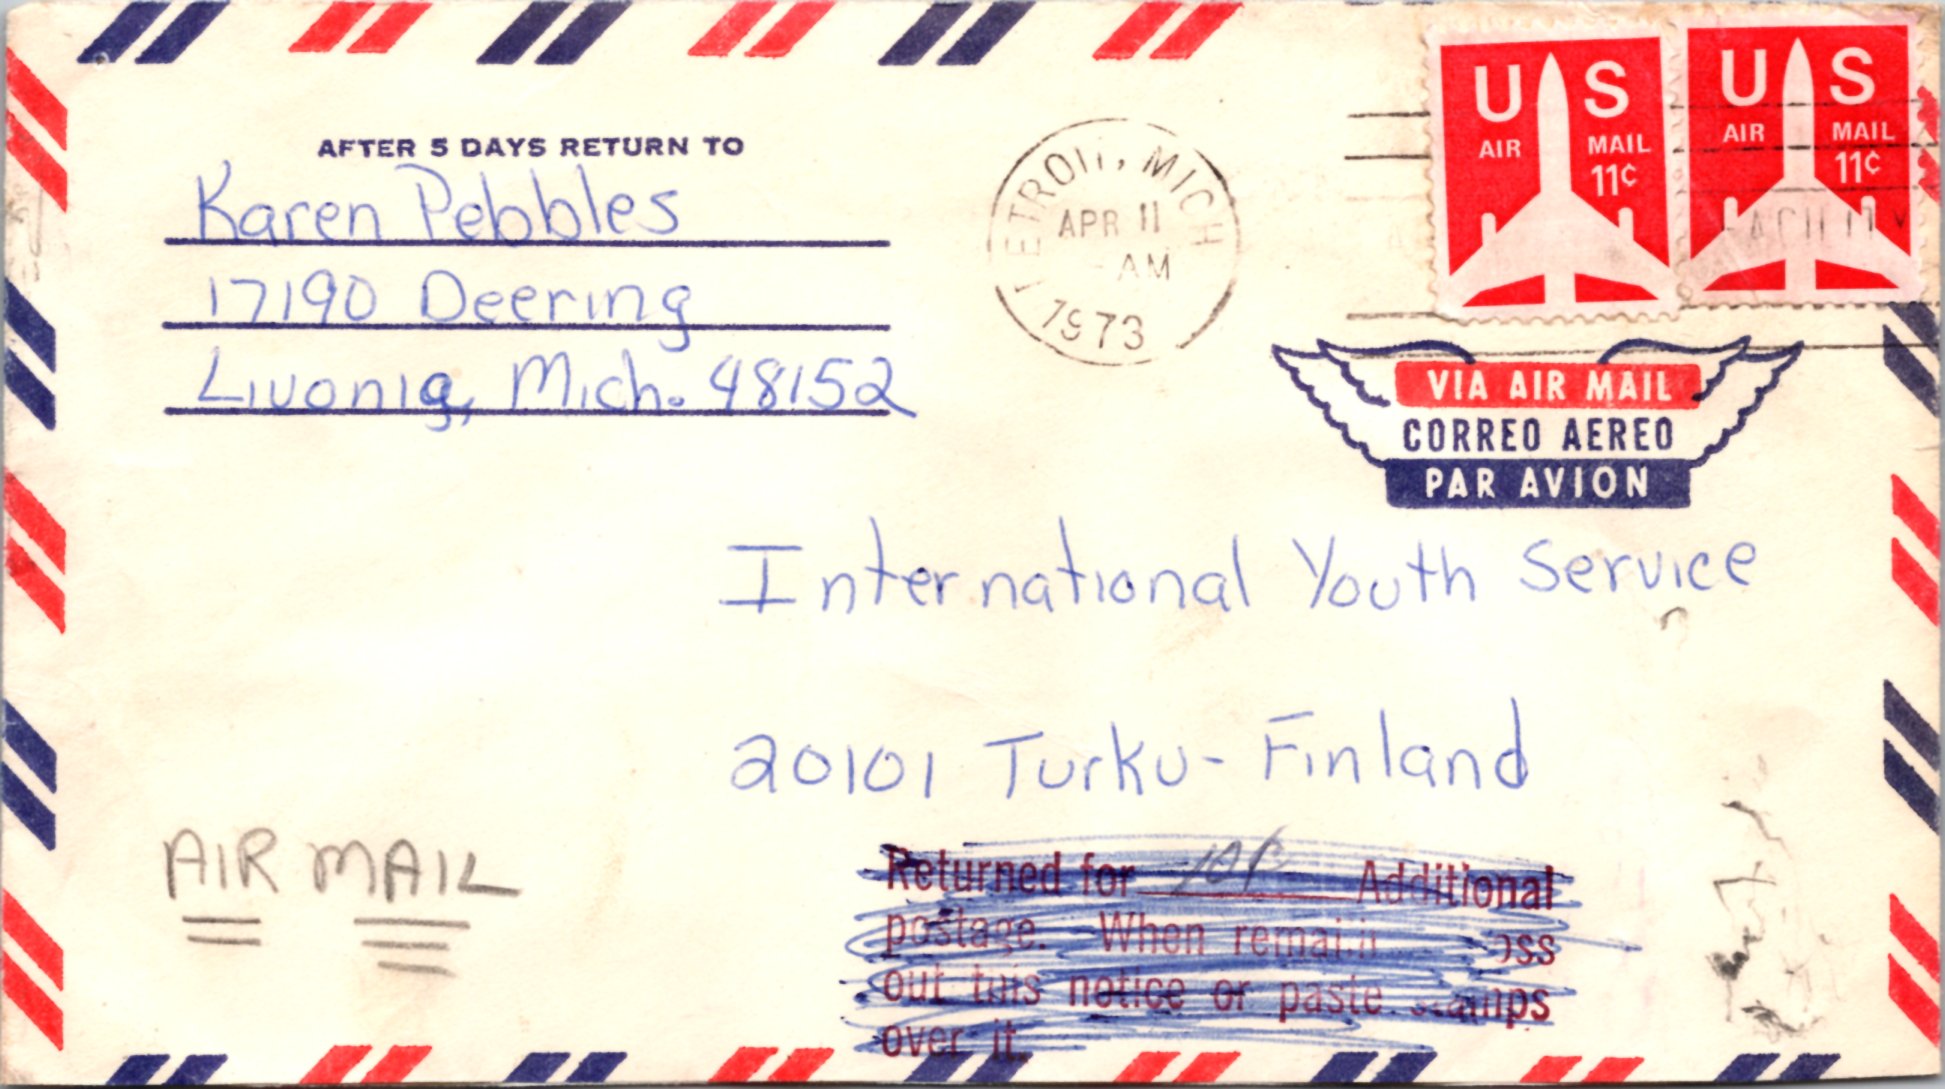 AFTER 5 DAYS RETURN TO
Karen Pebbles
17190 Deering
Livonia, Mich. 48152
DETROIT, MICH
APR 11
AM
1973
U S
AIR MAIL
11¢
U S
AIR MAIL
11¢
FACILITY
VIA AIR MAIL
CORREO AEREO
PAR AVION
International Youth Service
20101 Turku - Finland
AIR MAIL
Returned for 10¢ Additional
postage. When
out this notice or paste stamps
over it.